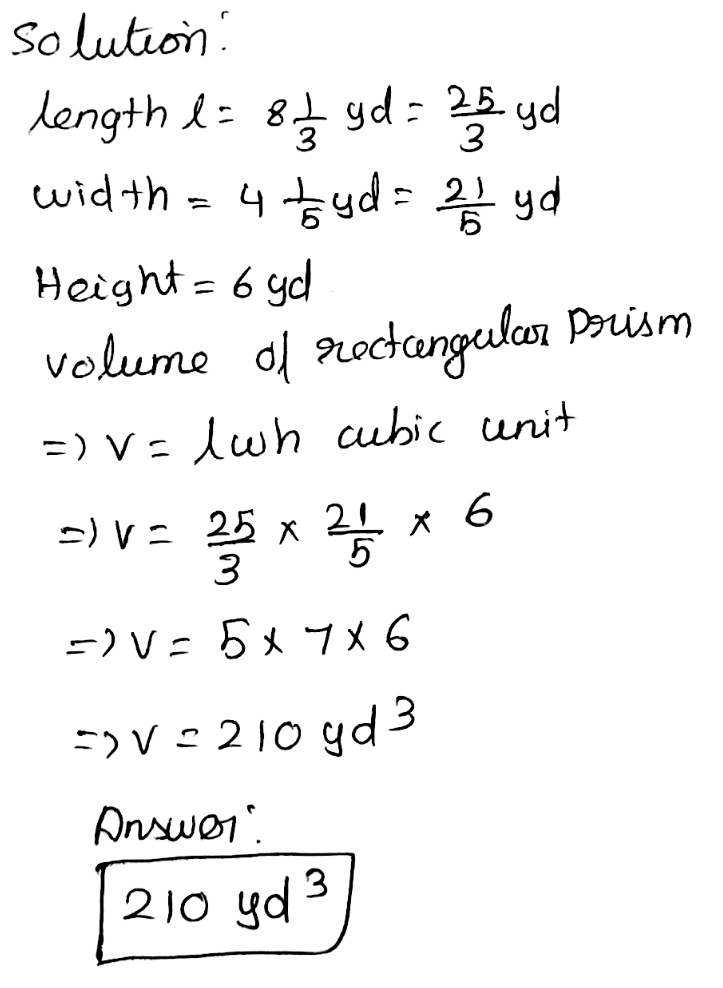 Solution:
length l = 8 1/3 yd = 25/3 yd
width = 4 1/5 yd = 21/5 yd
Height = 6 yd
volume of rectangular prism
=> V = lwh cubic unit
=> V = 25/3 x 21/5 x 6
=> V = 5 x 7 x 6
=> V = 210 yd³
Answer:
210 yd³